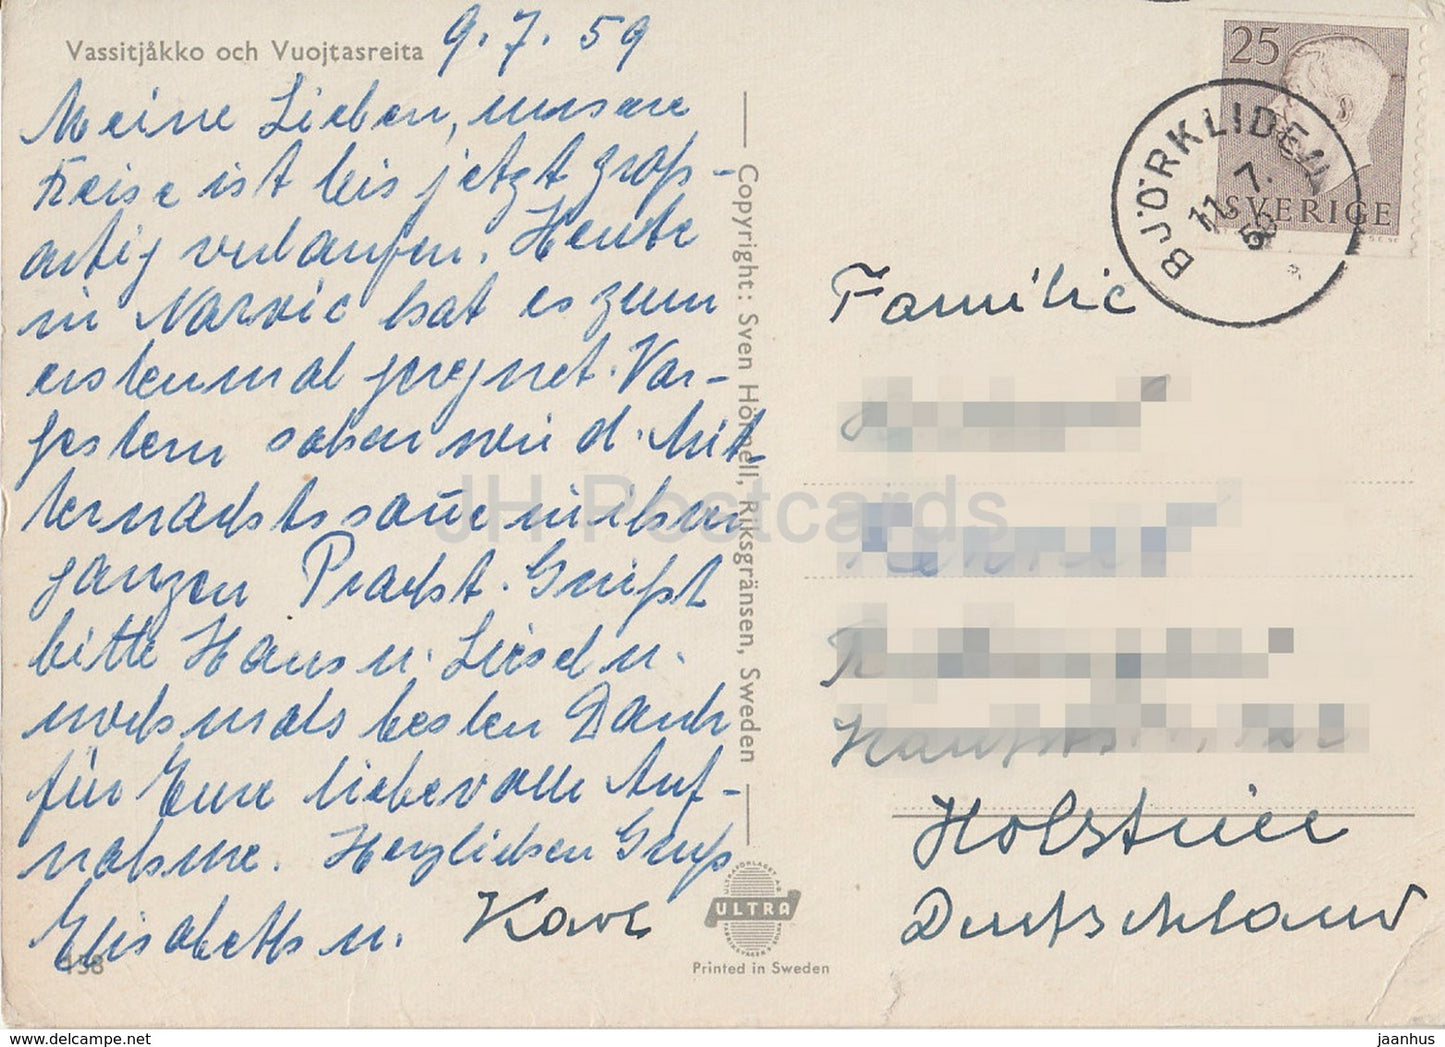 Vassitjåkko och Vuojtasreita 9.7.59
Meine Lieben, unsere
Reise ist bis jetzt groß-
artig verlaufen. Heute
in Narvic hat es zum
erstenmal geregnet. Vor-
gestern sahen wir d. Mit-
ternachtssonne in ihrer
ganzen Pracht. Grüßt
bitte Hans u. Liesel u.
nochmals besten Dank
für Eure liebevolle Auf-
nahme. Herzlichen Gruß
Elisabeth u. Karl
158
Copyright: Sven Hörnell, Riksgränsen, Sweden
ULTRA
Printed in Sweden
25
SVERIGE
BJÖRKLIDEN
11. 7.
59
Familie
Holstein
Deutschland
JH Postcards
jaanhus-stamps.ecrater.com
jaanhus